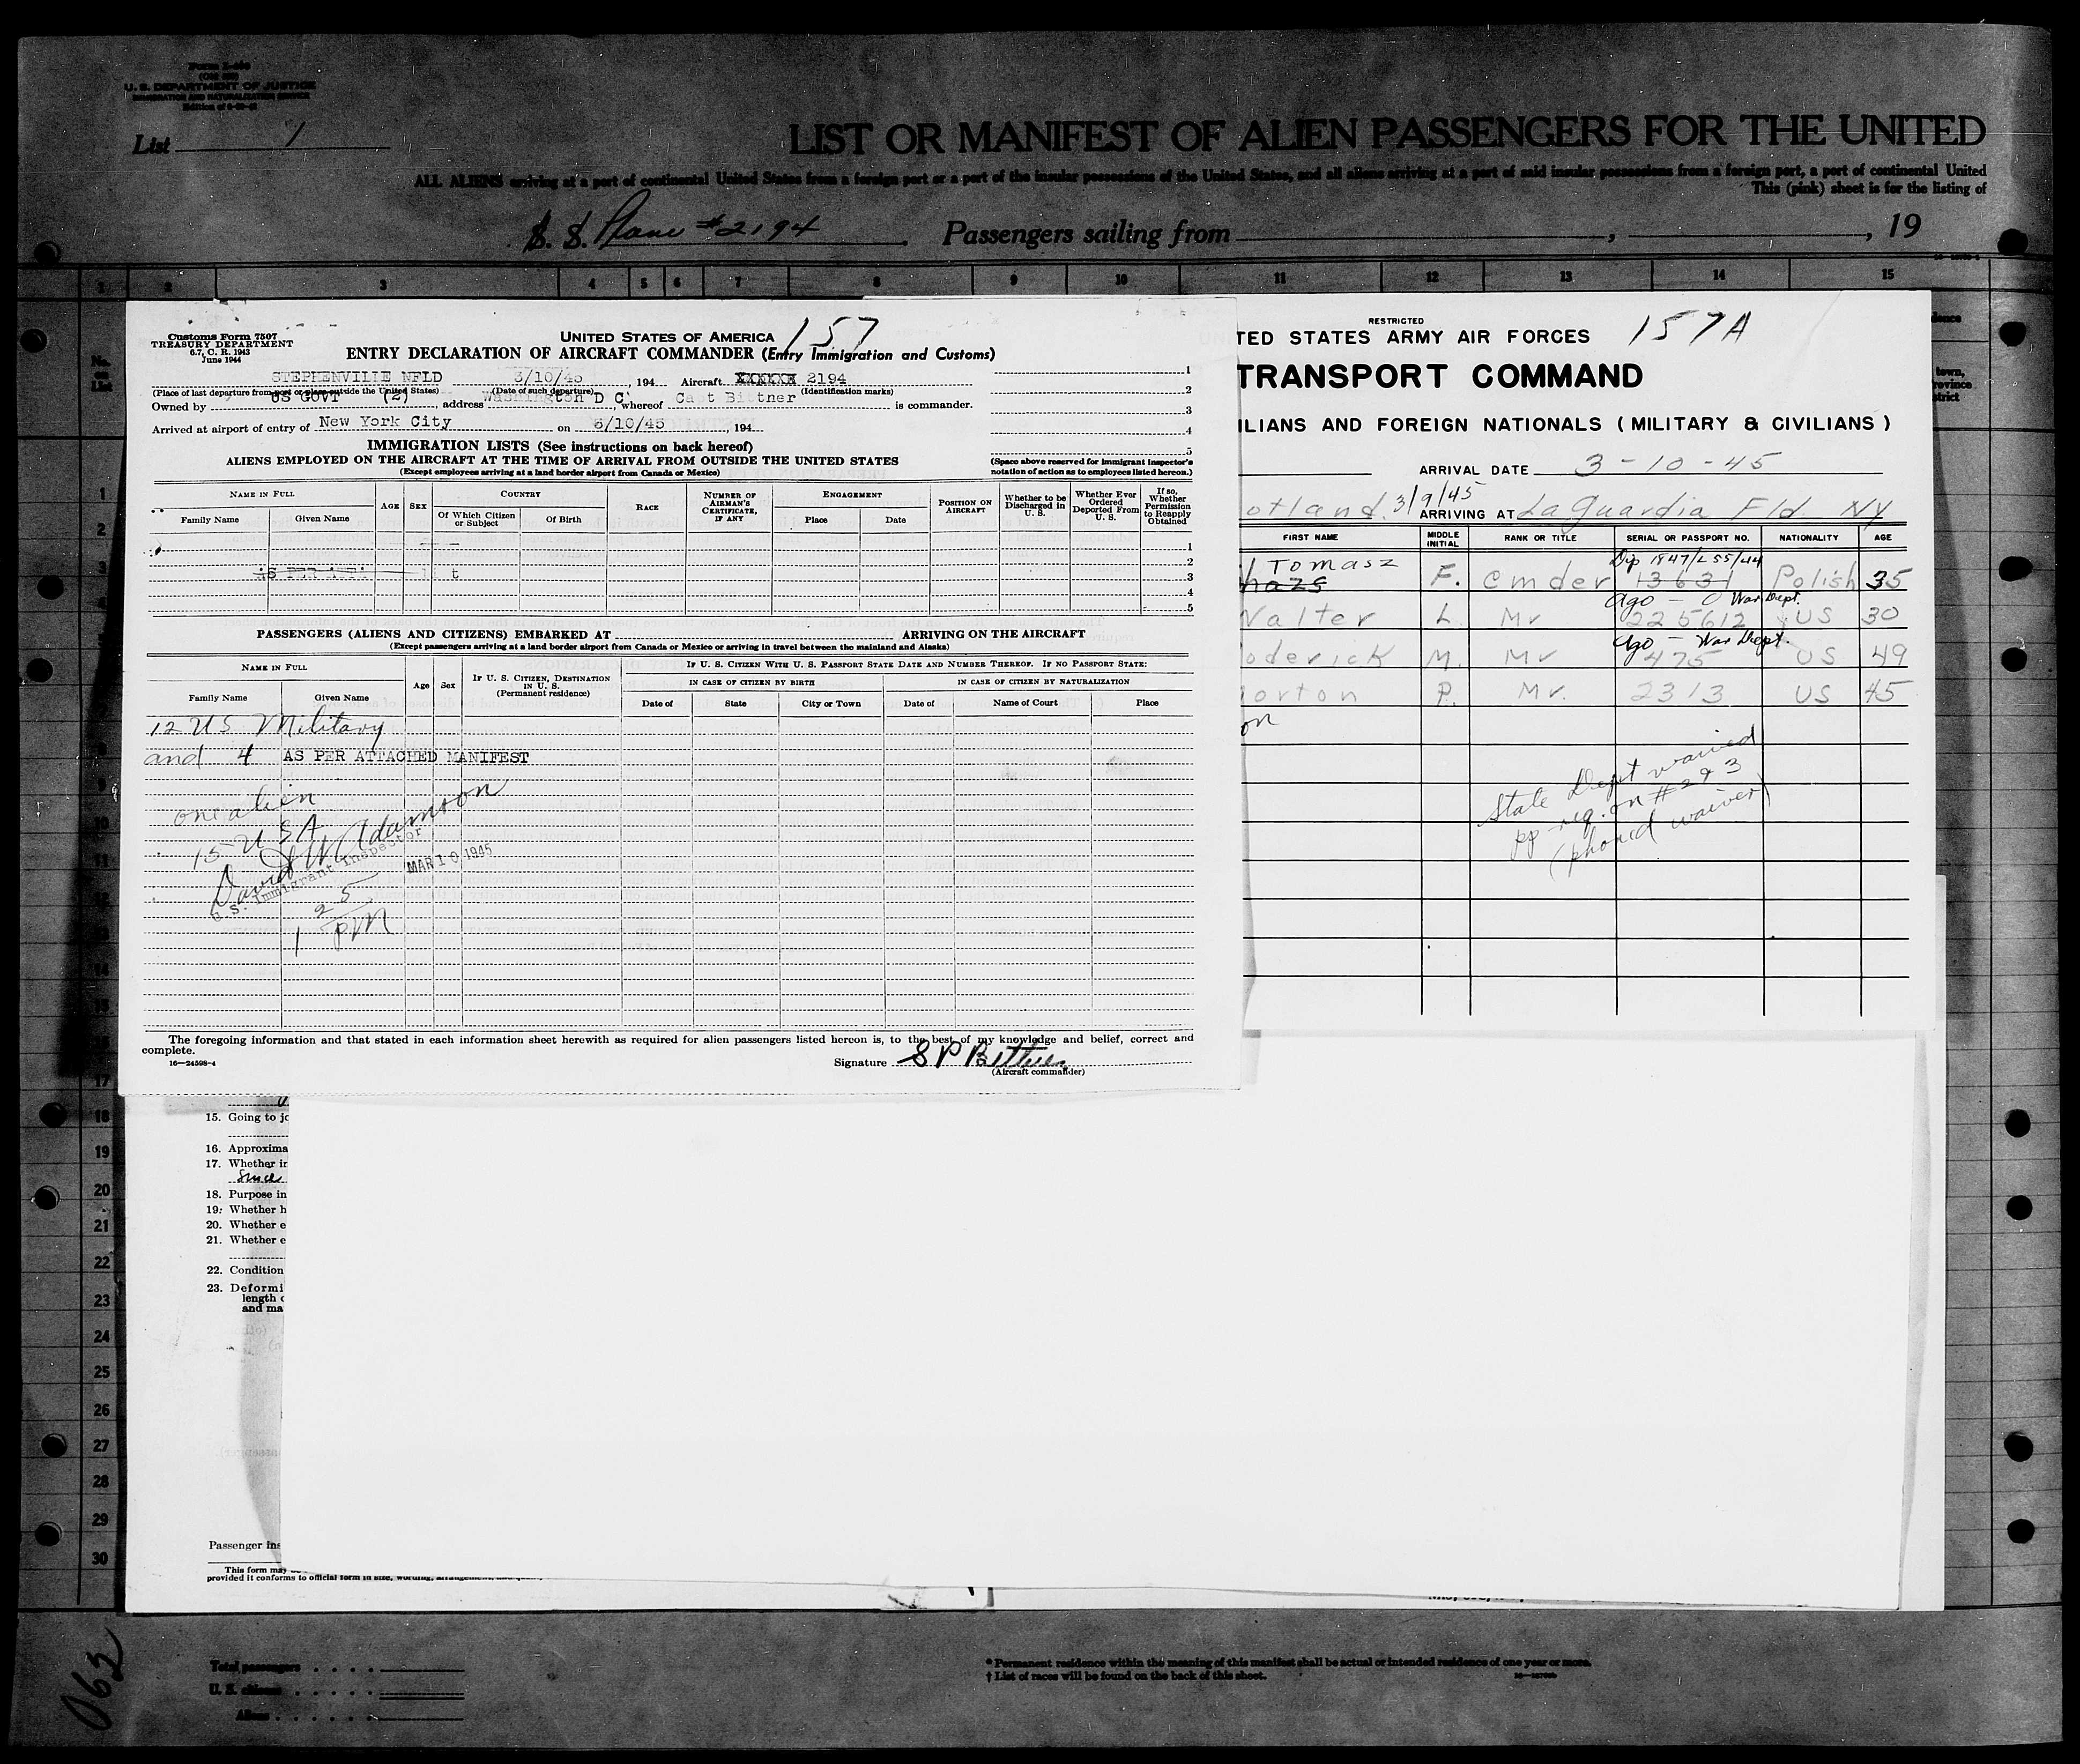 Form I-466
U. S. DEPARTMENT OF JUSTICE
IMMIGRATION AND NATURALIZATION SERVICE
List 1
LIST OR MANIFEST OF ALIEN PASSENGERS FOR THE UNITED
ALL ALIENS arriving at a port of continental United States from a foreign port or a port of the insular possessions of the United States, and all aliens arriving at a port of said insular possessions from a foreign port, a port of continental United
This (pink) sheet is for the listing of
S. S. Plane #2194 Passengers sailing from , , 19
1 2 3 4 5 6 7 8 9 10 11 12 13 14 15
No. on List
Customs Form 7507
TREASURY DEPARTMENT
6.7, C. R. 1943
June 1944
UNITED STATES OF AMERICA 157
ENTRY DECLARATION OF AIRCRAFT COMMANDER (Entry Immigration and Customs)
STEPHENVILLE NFLD 3/10/45 , 194 Aircraft XXXXXX 2194
(Place of last departure from port or place outside the United States) (Date of such departure) (Identification marks)
Owned by US GOVT (2) , address Washington D C , whereof Capt Bittner is commander.
Arrived at airport of entry of New York City on 3/10/45 , 194
1
2
3
4
5
IMMIGRATION LISTS (See instructions on back hereof)
ALIENS EMPLOYED ON THE AIRCRAFT AT THE TIME OF ARRIVAL FROM OUTSIDE THE UNITED STATES
(Except employees arriving at a land border airport from Canada or Mexico)
(Space above reserved for immigrant inspector's notation of action as to employees listed hereon.)
NAME IN FULL
Family Name Given Name
AGE SEX
COUNTRY
Of Which Citizen or Subject Of Birth
RACE
NUMBER OF AIRMAN'S CERTIFICATE, IF ANY
ENGAGEMENT
Place Date
POSITION ON AIRCRAFT
Whether to be Discharged in U. S.
Whether Ever Ordered Deported From U. S.
If so, Whether Permission to Reapply Obtained
1
2
3
4
5
PASSENGERS (ALIENS AND CITIZENS) EMBARKED AT ARRIVING ON THE AIRCRAFT
(Except passengers arriving at a land border airport from Canada or Mexico or arriving in travel between the mainland and Alaska)
NAME IN FULL
Family Name Given Name
Age Sex
IF U. S. CITIZEN, DESTINATION IN U. S.
(Permanent residence)
IF U. S. CITIZEN WITH U. S. PASSPORT STATE DATE AND NUMBER THEREOF. IF NO PASSPORT STATE:
IN CASE OF CITIZEN BY BIRTH IN CASE OF CITIZEN BY NATURALIZATION
Date of State City or Town Date of Name of Court Place
12 US Military
and 4 AS PER ATTACHED MANIFEST
one alien
15 USA
David W Adamson
U.S. Immigrant Inspector
MAR 10 1945
1 25 PM
The foregoing information and that stated in each information sheet herewith as required for alien passengers listed hereon is, to the best of my knowledge and belief, correct and
complete.
16—24598-4
Signature S P Bittner
(Aircraft commander)
RESTRICTED
TED STATES ARMY AIR FORCES 157A
TRANSPORT COMMAND
ILIANS AND FOREIGN NATIONALS (MILITARY & CIVILIANS)
ARRIVAL DATE 3-10-45
otland 3/9/45 ARRIVING AT La Guardia Fld NY
FIRST NAME MIDDLE INITIAL RANK OR TITLE SERIAL OR PASSPORT NO. NATIONALITY AGE
Tomasz F. Cmder Dip 1847/L 55/44 13631 Polish 35
Walter L. Mr Ago - 0 War Dept. 225612 US 30
oderick M. Mr Ago - War Dept. 475 US 49
orton P. Mr. 2313 US 45
on
State Dept waived
pp req. on #2 & 3
(phoned waiver)
15. Going to jo
16. Approxima
17. Whether in
Since
18. Purpose in
19. Whether h
20. Whether e
21. Whether e
22. Condition
23. Deformi
length o
and ma
Passenger ins
This form may
provided it conforms to official form in size, wording,
1
2
3
17
18
19
20
21
22
23
24
25
26
27
28
29
30
063
Total passengers
U. S. citizens
Aliens
* Permanent residence within the meaning of this manifest shall be actual or intended residence of one year or more.
† List of races will be found on the back of this sheet.